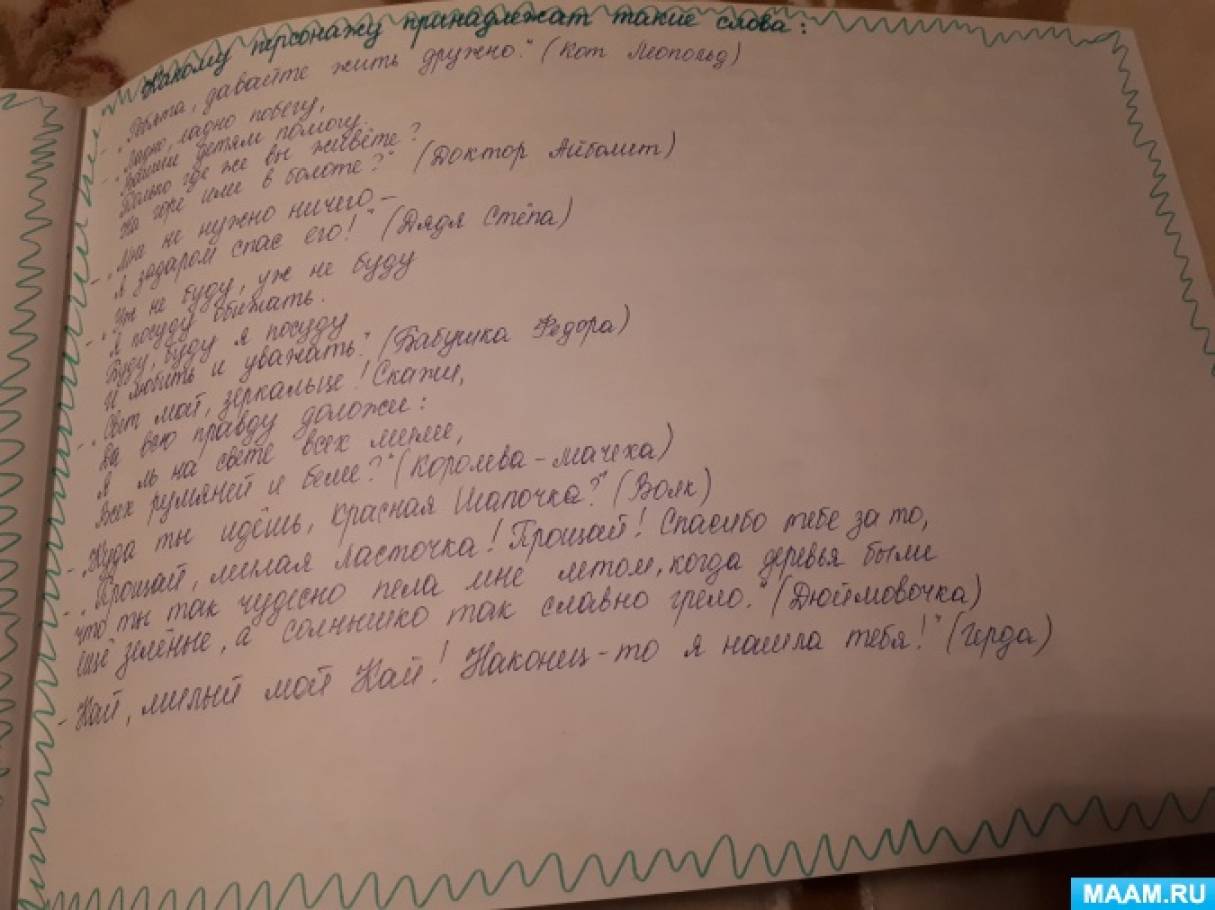 Какому персонажу принадлежат такие слова:
- „Ребята, давайте жить дружно." (Кот Леопольд)
- „Ладно, ладно побегу,
Вашим детям помогу.
Только где же вы живёте?
На горе или в болоте?" (Доктор Айболит)
- „Мне не нужно ничего –
Я задаром спас его!" (Дядя Стёпа)
- „Уж не буду, уж не буду
Я посуду обижать.
Буду, буду я посуду
И любить и уважать." (Бабушка Федора)
- „Свет мой, зеркальце! Скажи,
Да всю правду доложи:
Я ль на свете всех милее,
Всех румяней и белее?" (Королева-мачеха)
- „Куда ты идёшь, Красная Шапочка?" (Волк)
- „Прощай, милая ласточка! Прощай! Спасибо тебе за то,
что ты так чудесно пела мне летом, когда деревья были
ещё зелёные, а солнышко так славно грело." (Дюймовочка)
- Кай, милый мой Кай! Наконец-то я нашла тебя!" (Герда)
MAAM.RU